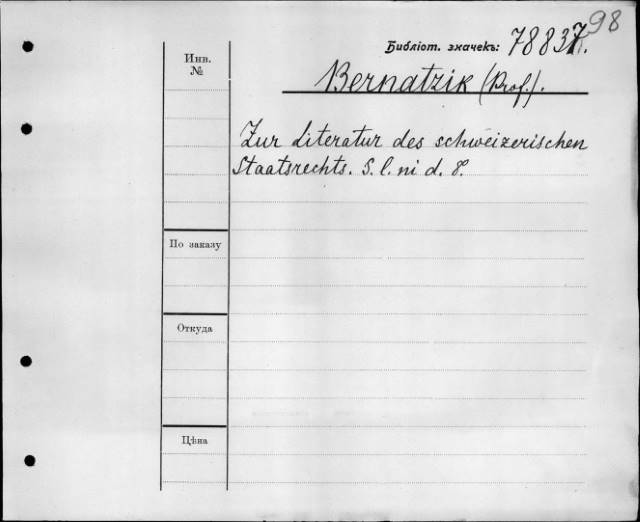 98
Библіот. значекъ: 78837.
Инв.
№
Bernatzik (Prof.).
Zur Literatur des schweizerischen
Staatsrechts. S. l. ni d. 8.
По заказу
Откуда
Цѣна